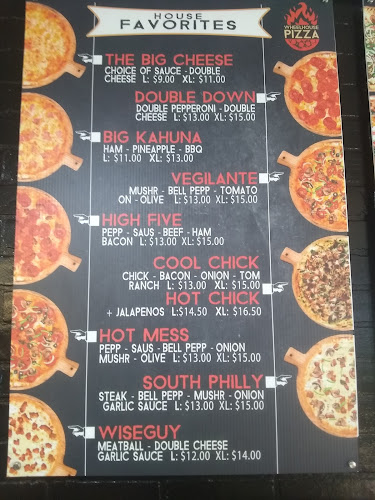 HOUSE
FAVORITES
WHEELHOUSE
PIZZA
THE BIG CHEESE
CHOICE OF SAUCE - DOUBLE
CHEESE L: $9.00 XL: $11.00
DOUBLE DOWN
DOUBLE PEPPERONI - DOUBLE
CHEESE L: $13.00 XL: $15.00
BIG KAHUNA
HAM - PINEAPPLE - BBQ
L: $11.00 XL: $13.00
VEGILANTE
MUSHR - BELL PEPP - TOMATO
ON - OLIVE L: $13.00 XL: $15.00
HIGH FIVE
PEPP - SAUS - BEEF - HAM
BACON L: $13.00 XL: $15.00
COOL CHICK
CHICK - BACON - ONION - TOM
RANCH L: $13.00 XL: $15.00
HOT CHICK
+ JALAPENOS L:$14.50 XL: $16.50
HOT MESS
PEPP - SAUS - BELL PEPP - ONION
MUSHR - OLIVE L: $13.00 XL: $15.00
SOUTH PHILLY
STEAK - BELL PEPP - MUSHR - ONION
GARLIC SAUCE L: $13.00 XL: $15.00
WISEGUY
MEATBALL - DOUBLE CHEESE
GARLIC SAUCE L: $12.00 XL: $14.00